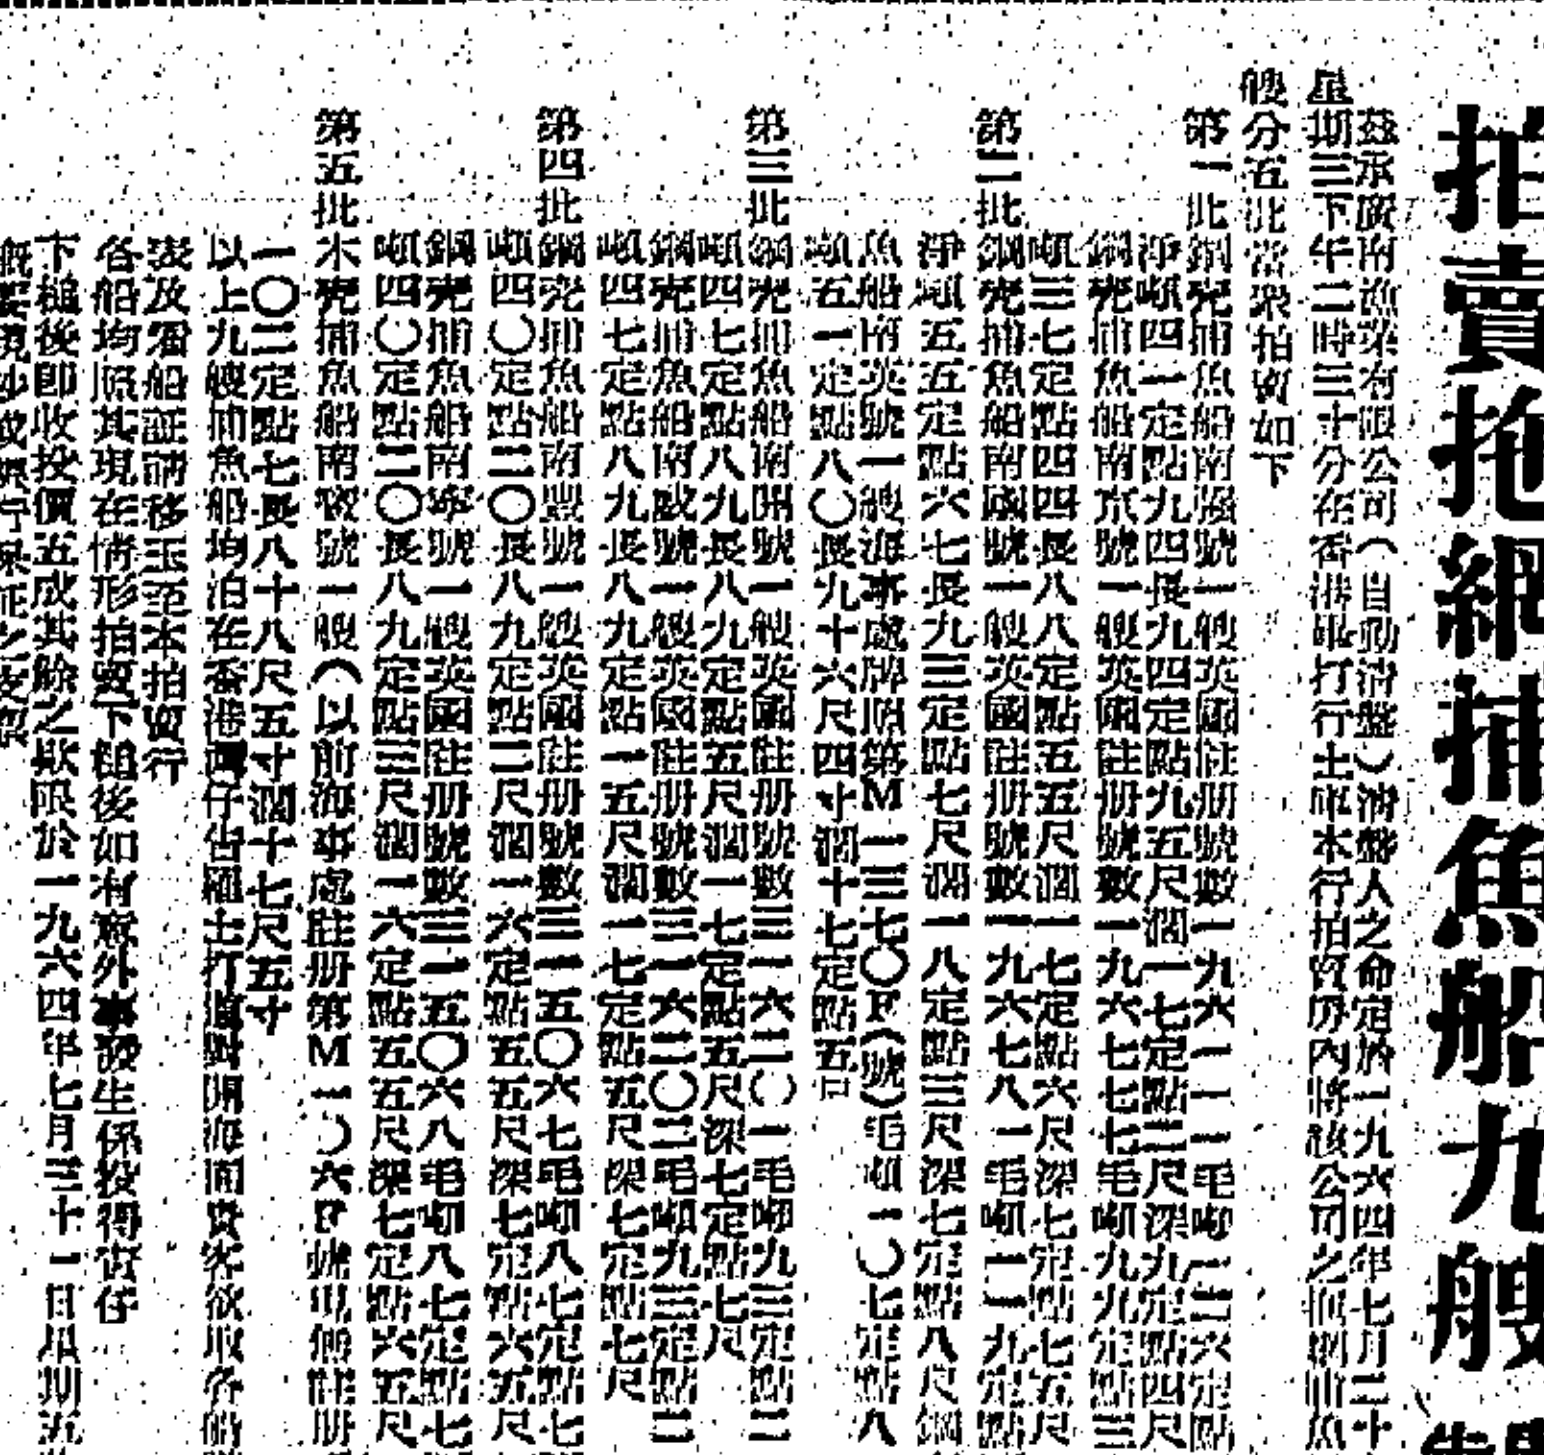 拍賣拖網捕魚船九艘
茲承廣南漁業有限公司（自動清盤）清盤人之命定於一九六四年七月二十
星期三下午二時三十分在香港畢打行士庫本行拍賣房內將該公司之拖網捕魚
艘分五批當眾拍賣如下
第一批鋼壳捕魚船南強號一艘英國註册號數一九六一一一毛噸一二六定點
淨噸四一定點九四長九四定點九五尺濶一七定點二尺深九定點四尺
鋼壳捕魚船南京號一艘英國註册號數一九六七七七毛噸九九定點三
噸三七定點四四長八八定點五五尺濶一七定點六尺深七定點七五尺
第二批鋼壳捕魚船南國號一艘英國註册號數一九六七八一毛噸一一九定點
淨噸五五定點六七長九三定點七尺濶一八定點三尺深七定點八尺鋼
魚船南英號一艘海事處牌照第M一三七〇F（號）毛噸一〇七定點八
噸五一定點八〇長九十六尺四寸濶十七定點五尺
第三批鋼壳捕魚船南開號一艘英國註册號數三一六二〇一毛噸九三定點二
噸四七定點八九長八九定點五尺濶一七定點五尺深七定點七尺
鋼壳捕魚船南威號一艘英國註册號數三一六二〇二毛噸九三定點二
噸四七定點八九長八九定點一五尺濶一七定點五尺深七定點七尺
第四批鋼壳捕魚船南豐號一艘英國註册號數三一五〇六七毛噸八七定點七
噸四〇定點二〇長八九定點二尺濶一六定點五五尺深七定點六五尺
鋼壳捕魚船南寧號一艘英國註册號數三一五〇六八毛噸八七定點七
噸四〇定點二〇長八九定點三尺濶一六定點五五尺深七定點六五尺
第五批木壳捕魚船南號一艘（以前海事處註册第M一〇六F號現無註册
一〇二定點七長八十八尺五寸濶十七尺五寸
以上九艘捕魚船均泊在香港灣仔告羅士打道對開海面貴客欲取各船
表及看船証請移玉至本拍賣行
各船均照其現在情形拍賣下鎚後如有意外事發生係投得者任
下鎚後即收投價五成其餘之欵限於一九六四年七月三十一日星期五
概要現鈔或銀行保証之支票